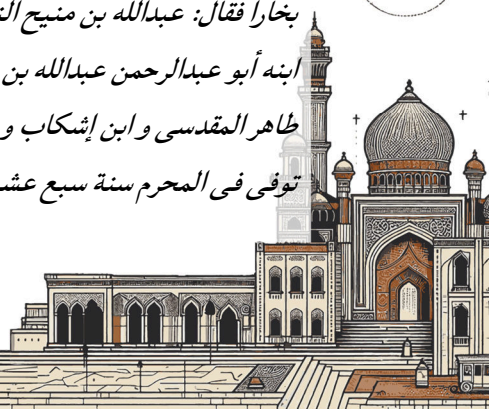 بخارا فقال: عبدالله بن منيح
ابنه أبو عبدالرحمن عبدالله بن
طاهر المقدسى و ابن إشكاب و
توفى فى المحرم سنة سبع